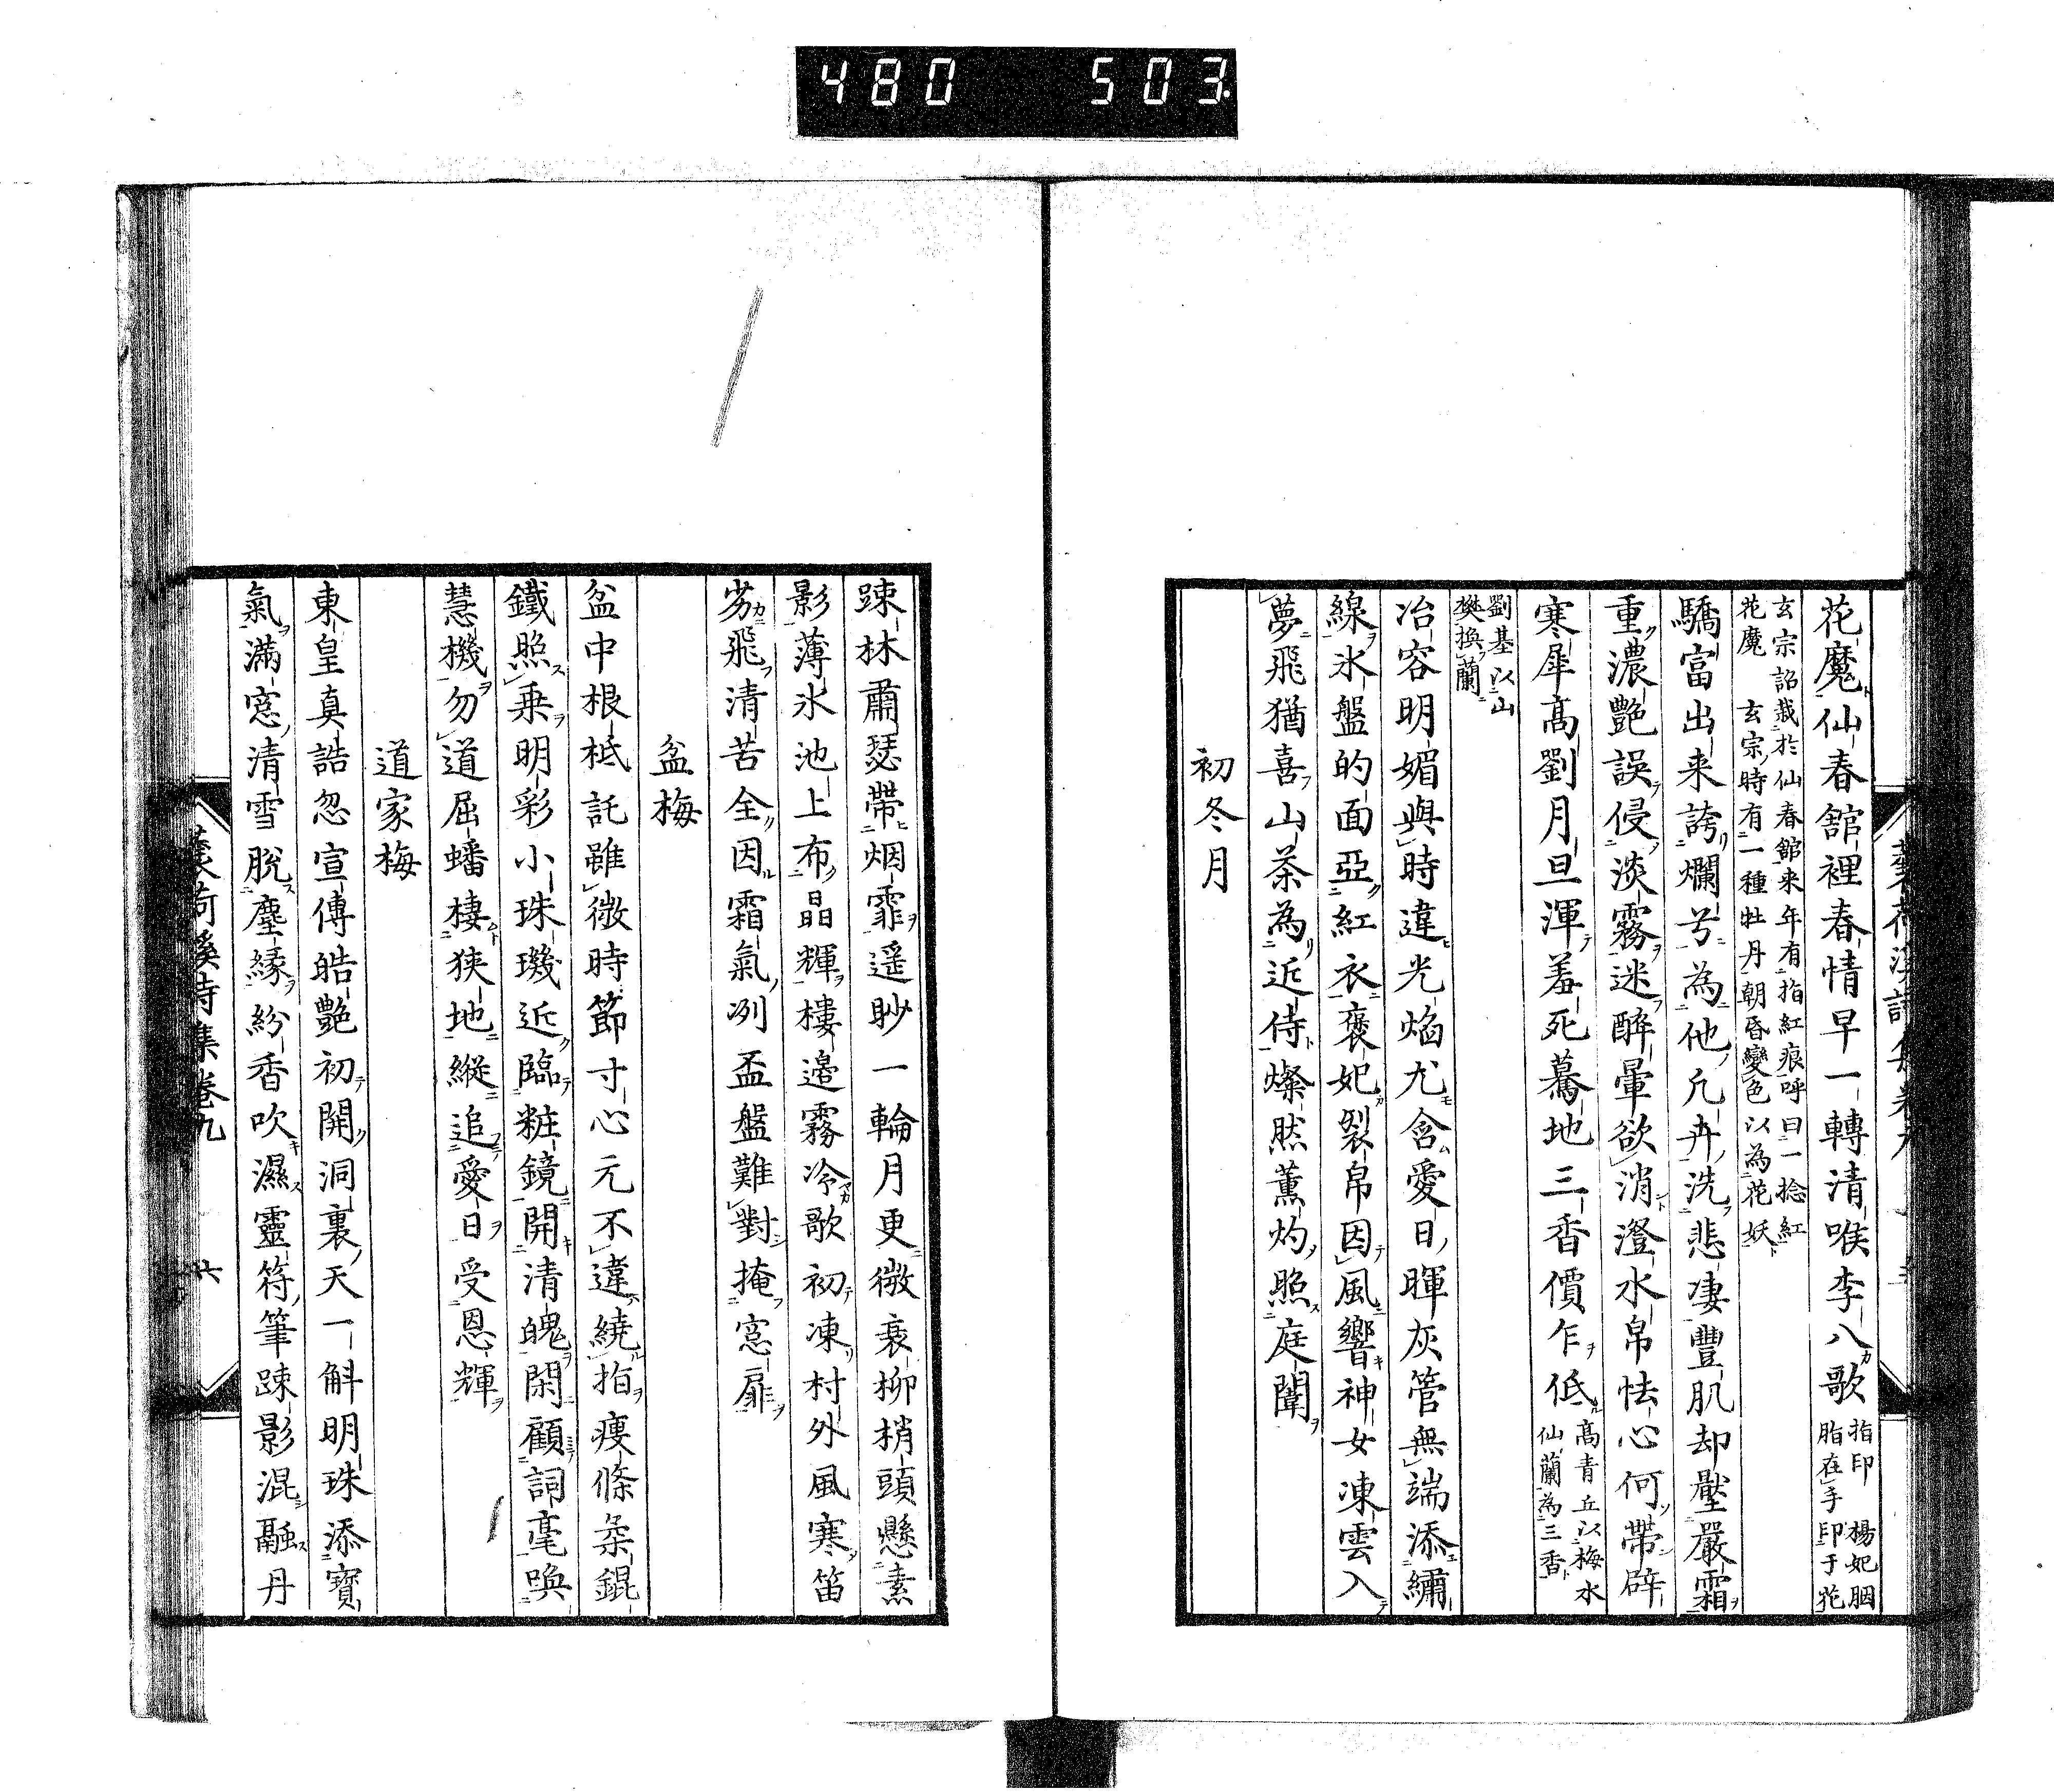 480 503
花魔仙春舘裡春情早一轉清喉李八歌 指印 楊妃胭
脂在手印于花
玄宗詔栽於仙春舘来年有指紅痕呼曰一捻紅
花魔 玄宗時有一種牡丹朝昏變色以為花妖
驕富出来誇爛兮為他凢卉洗悲凄豐肌却壓嚴霜
重濃艶誤侵淡霧迷酔暈欲消澄水帛怯心何帶辟
寒犀高劉月旦渾羞死驀地三香價乍低 高青丘以梅水
仙蘭為三香
劉基以山
礬換蘭
冶容明媚與時違光焔尤含愛日暉灰管無端添繡
線氷盤的面亞紅衣褒妃裂帛因風響神女凍雲入
夢飛猶喜山茶為近侍燦然薫灼照庭闈
初冬月
踈林肅瑟帶烟霏遥眇一輪月更微衰柳梢頭懸素
影薄氷池上布晶輝樓邉霧冷歌初凍村外風寒笛
劣飛清苦全因霜氣冽盃盤難對掩窓扉
盆梅
盆中根柢託雖微時節寸心元不違繞指痩條柔錕
鐵照乗明彩小珠璣近臨粧鏡開清魄閑顧詞毫喚
慧機勿道屈蟠棲狭地縱追愛日受恩輝
道家梅
東皇真誥忽宣傳皓艶初開洞裏天一斛明珠添寳
氣滿窓清雪脫塵縁紛香吹濕靈符筆踈影混融丹
詩集巻九
六